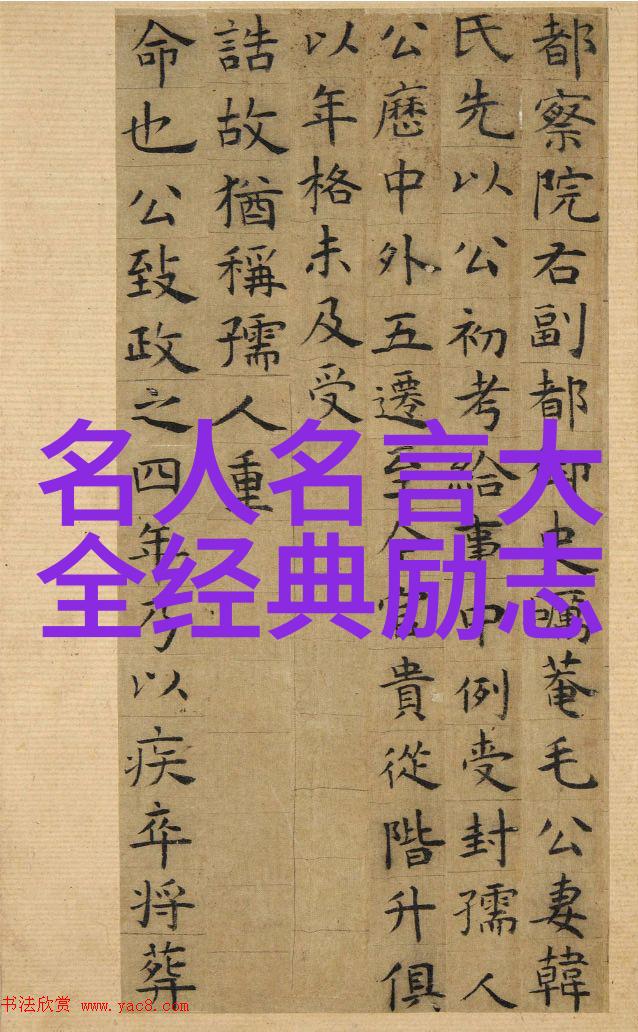 都察院右副都御史礪菴毛公妻韓
氏先以公初考給事中例受封孺人
公歷中外五遷至今官貴從階升俱
以年格未及受
誥故猶稱孺人重
命也公致政之四年乃以疾卒將葬
名人名言大
全经典励志
书法欣赏 www.yac8.com